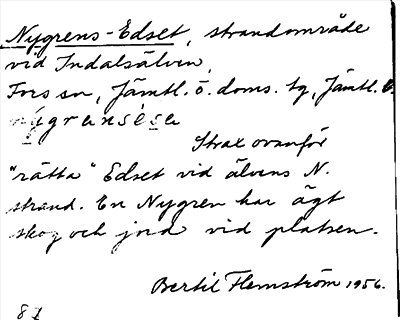 Nygrens-Edset, strandområde
vid Indalsälven,
Fors sn, Jämtl. ö. doms. tg, Jämtl.
nygrensésa
Strax ovanför
"rätta" Edset vid älvens N.
strand. En Nygren har ägt
skog och jord vid platsen.
Bertil Flemström 1956.